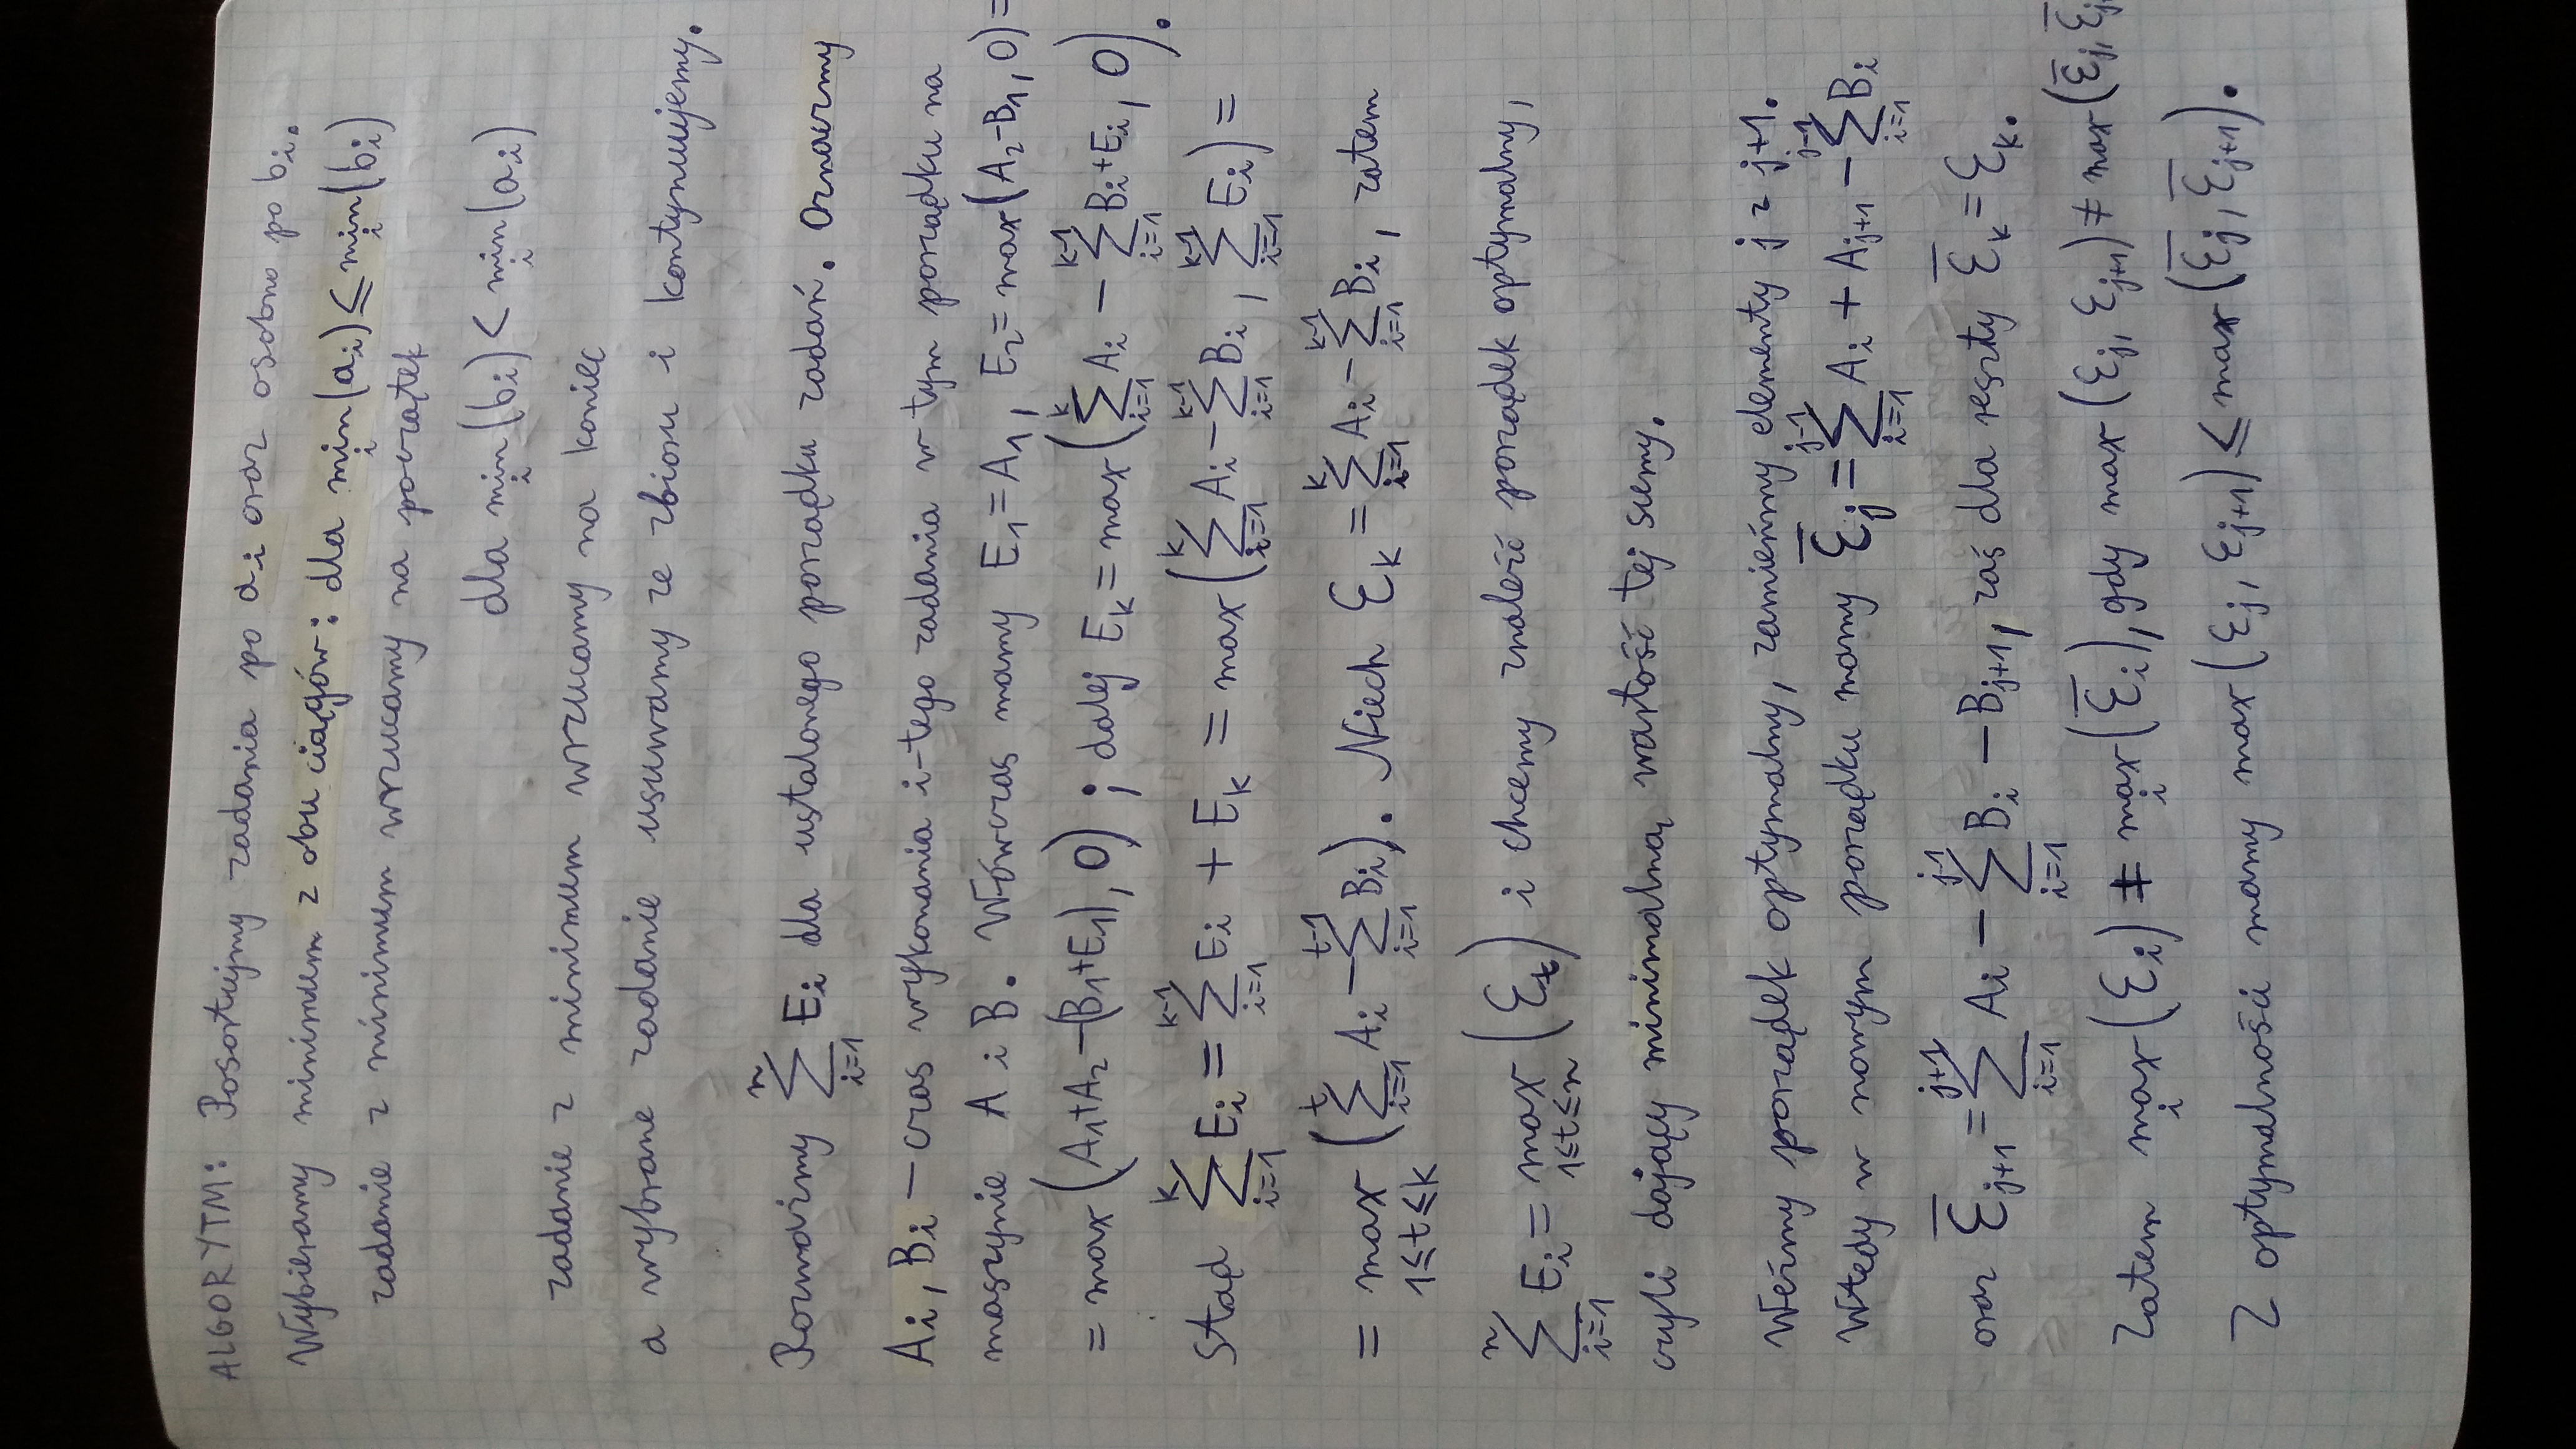 ALGORYTM: Posortujmy zadania po aᵢ oraz osobno po bᵢ.
Wybieramy minimum z obu ciągów: dla min_i(aᵢ) ≤ min_i(bᵢ)
zadanie z minimum wrzucamy na początek
dla min_i(bᵢ) < min_i(aᵢ)
zadanie z minimum wrzucamy na koniec
a wybrane zadanie usuwamy ze zbioru i kontynuujemy.
Rozważmy ∑_{i=1}^{n} Eᵢ dla ustalonego porządku zadań. Oznaczmy
Aᵢ, Bᵢ – czas wykonania i-tego zadania w tym porządku na
maszynie A i B. Wówczas mamy E₁ = A₁, E₂ = max(A₂-B₁, 0) =
= max(A₁+A₂-(B₁+E₁), 0); dalej E_k = max(∑_{i=1}^{k} Aᵢ - ∑_{i=1}^{k-1} Bᵢ+Eᵢ, 0).
Stąd ∑_{i=1}^{k} Eᵢ = ∑_{i=1}^{k-1} Eᵢ + E_k = max(∑_{i=1}^{k} Aᵢ - ∑_{i=1}^{k-1} Bᵢ, ∑_{i=1}^{k-1} Eᵢ) =
= max_{1≤t≤k} (∑_{i=1}^{t} Aᵢ - ∑_{i=1}^{t-1} Bᵢ). Niech Ɛ_k = ∑_{i=1}^{k} Aᵢ - ∑_{i=1}^{k-1} Bᵢ, zatem
∑_{i=1}^{n} Eᵢ = max_{1≤t≤n} (Ɛ_t) i chcemy znaleźć porządek optymalny,
czyli dający minimalną wartość tej sumy.
Weźmy porządek optymalny, zamieńmy elementy j z j+1.
Wtedy w nowym porządku mamy Ɛ̅_j = ∑_{i=1}^{j-1} Aᵢ + A_{j+1} - ∑_{i=1}^{j-1} Bᵢ
oraz Ɛ̅_{j+1} = ∑_{i=1}^{j+1} Aᵢ - ∑_{i=1}^{j-1} Bᵢ - B_{j+1}, zaś dla reszty Ɛ̅_k = Ɛ_k.
Zatem max_i(Ɛᵢ) ≠ max_i(Ɛ̅ᵢ), gdy max(Ɛ_j, Ɛ_{j+1}) ≠ max(Ɛ̅_j, Ɛ̅_j
Z optymalności mamy max(Ɛ_j, Ɛ_{j+1}) ≤ max(Ɛ̅_j, Ɛ̅_{j+1}).